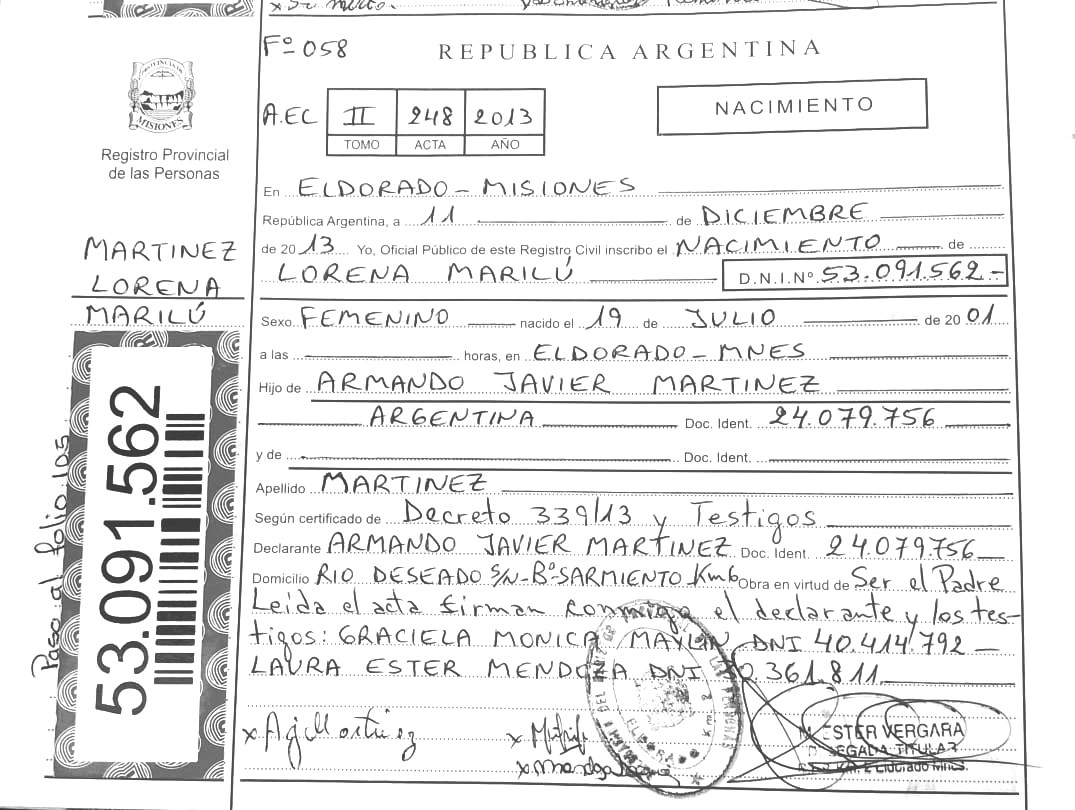 x Su merto.
Fº 058
REPUBLICA ARGENTINA
PROVINCIA DE
MISIONES
Registro Provincial
de las Personas
A.EC II 248 2013
TOMO ACTA AÑO
NACIMIENTO
En ELDORADO - MISIONES
República Argentina, a 11 de DICIEMBRE
de 2013 Yo, Oficial Público de este Registro Civil inscribo el NACIMIENTO de
LORENA MARILÚ D.N.I.Nº 53.091.562.-
MARTINEZ
LORENA
MARILÚ
Sexo FEMENINO nacido el 19 de JULIO de 2001
a las horas, en ELDORADO - MNES
Hijo de ARMANDO JAVIER MARTINEZ
ARGENTINA Doc. Ident. 24.079.756
y de Doc. Ident.
Apellido MARTINEZ
Según certificado de Decreto 339/13 y Testigos
Declarante ARMANDO JAVIER MARTINEZ Doc. Ident. 24.079.756
Domicilio RIO DESEADO S/N - Bº SARMIENTO Km6 Obra en virtud de Ser el Padre
Leída el acta firman conmigo el declarante y los tes-
tigos: GRACIELA MONICA MAYLIN DNI 40.414.792 -
LAURA ESTER MENDOZA DNI 361.811
Paso al folio 105
53.091.562
x AJMartinez
x
x Mendoza
ESTER VERGARA
DELEGADA TITULAR